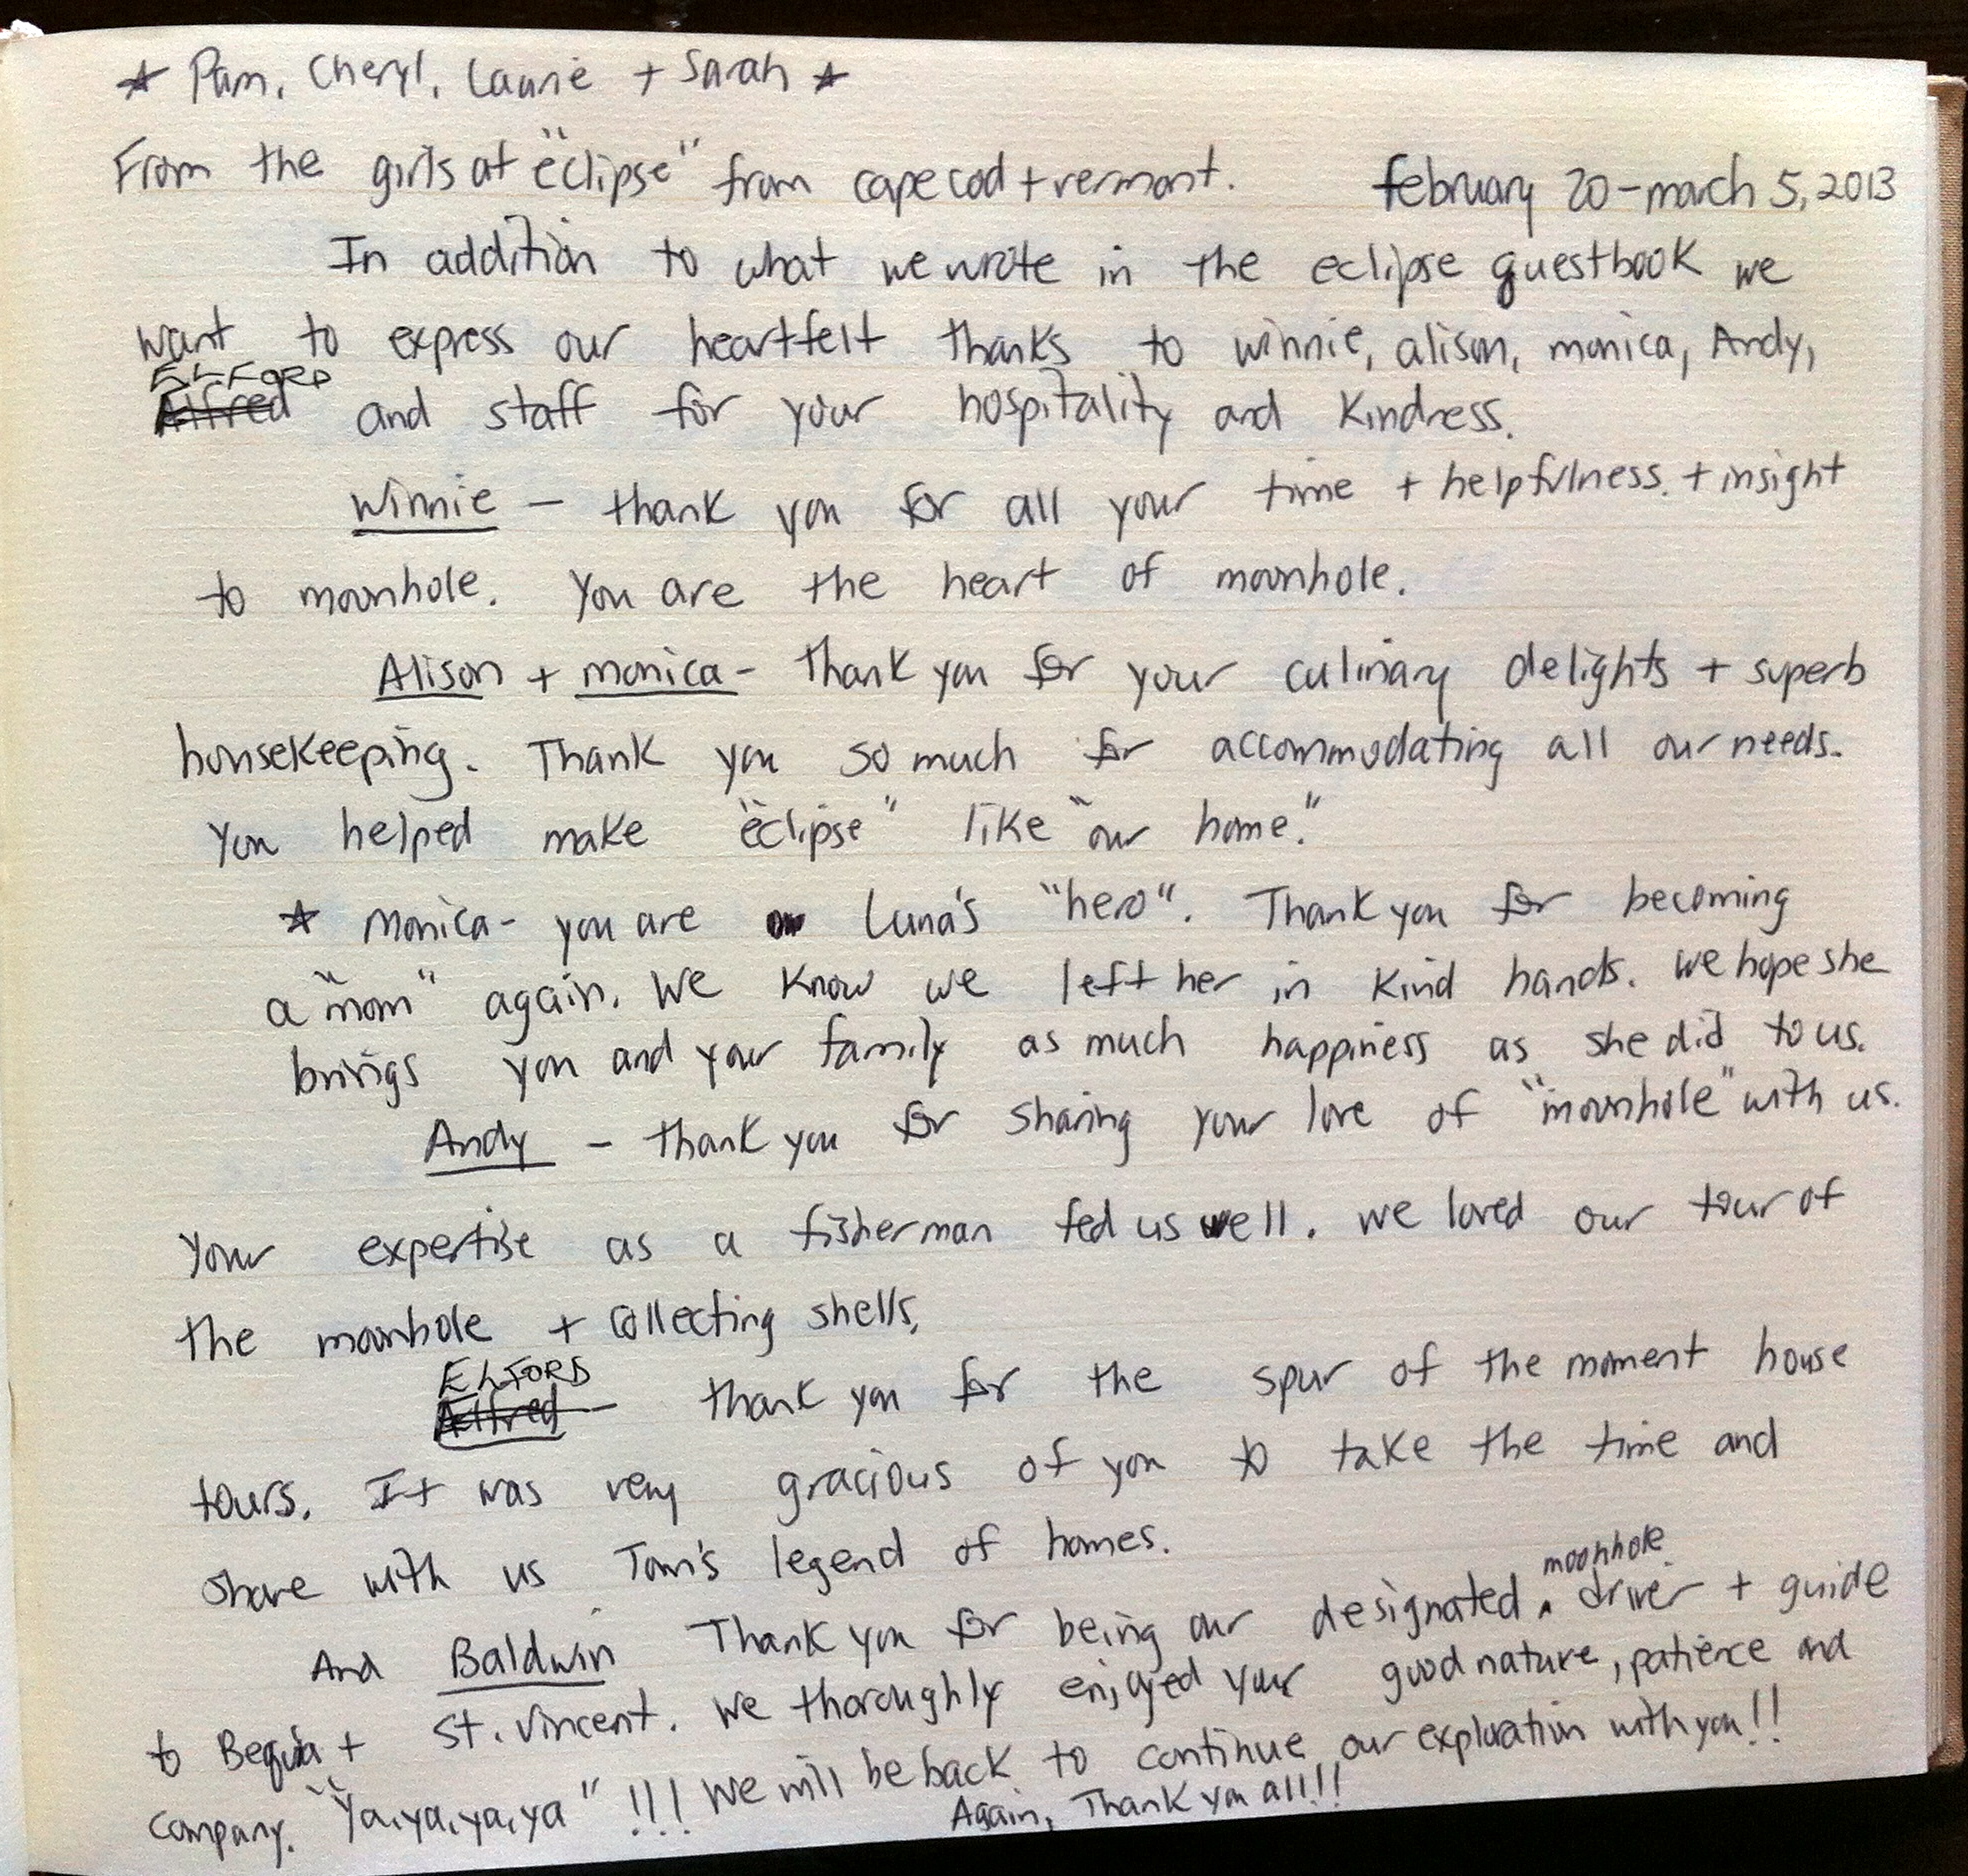 ★ Pam, Cheryl, Laurie + Sarah ★
From the girls at "eclipse" from cape cod + vermont. february 20 - march 5, 2013
In addition to what we wrote in the eclipse guestbook we
want to express our heartfelt thanks to winnie, alison, monica, Andy,
ELFORD
Alfred and staff for your hospitality and kindness.
Winnie - thank you for all your time + helpfulness. + insight
to moonhole. You are the heart of moonhole.
Alison + monica - thank you for your culinary delights + superb
housekeeping. Thank you so much for accommodating all our needs.
You helped make "eclipse" like "our home."
★ Monica - you are Luna's "hero". Thank you for becoming
a "mom" again. We know we left her in kind hands. We hope she
brings you and your family as much happiness as she did to us.
Andy - thank you for sharing your love of "moonhole" with us.
Your expertise as a fisherman fed us well. we loved our tour of
the moonhole + collecting shells.
ELFORD
Alfred - thank you for the spur of the moment house
tours. It was very gracious of you to take the time and
share with us Tom's legend of homes.
moonhole
And Baldwin Thank you for being our designated ^ driver + guide
to Bequia + St. Vincent. We thoroughly enjoyed your good nature, patience and
company. "Ya, ya, ya, ya" !!! We will be back to continue our exploration with you!!
Again, Thank you all!!!